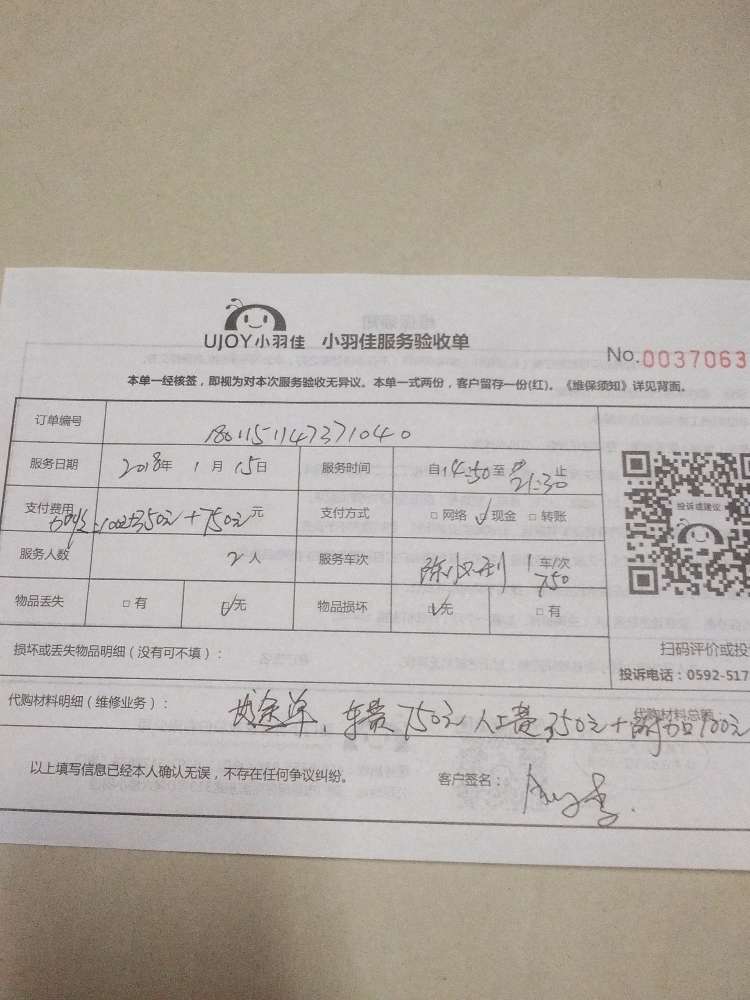 UJOY小羽佳 小羽佳服务验收单
No.0037063
本单一经核签，即视为对本次服务验收无异议。本单一式两份，客户留存一份(红)。《维保须知》详见背面。
订单编号 1801151147371040
服务日期 2018年 1月 15日 服务时间 自14:50至21:30止
支付费用 350元+750元 元 支付方式 □网络 ☑现金 □转账
投诉或建议
服务人数 2人 服务车次 1车/次
750
物品丢失 □有 ☑无 物品损坏 ☑无 □有
损坏或丢失物品明细（没有可不填）：
扫码评价或投
投诉电话：0592-517
代购材料明细（维修业务）： 长途单、车费750元人工费350元+附加100元
代购材料总额：
以上填写信息已经本人确认无误，不存在任何争议纠纷。 客户签名：